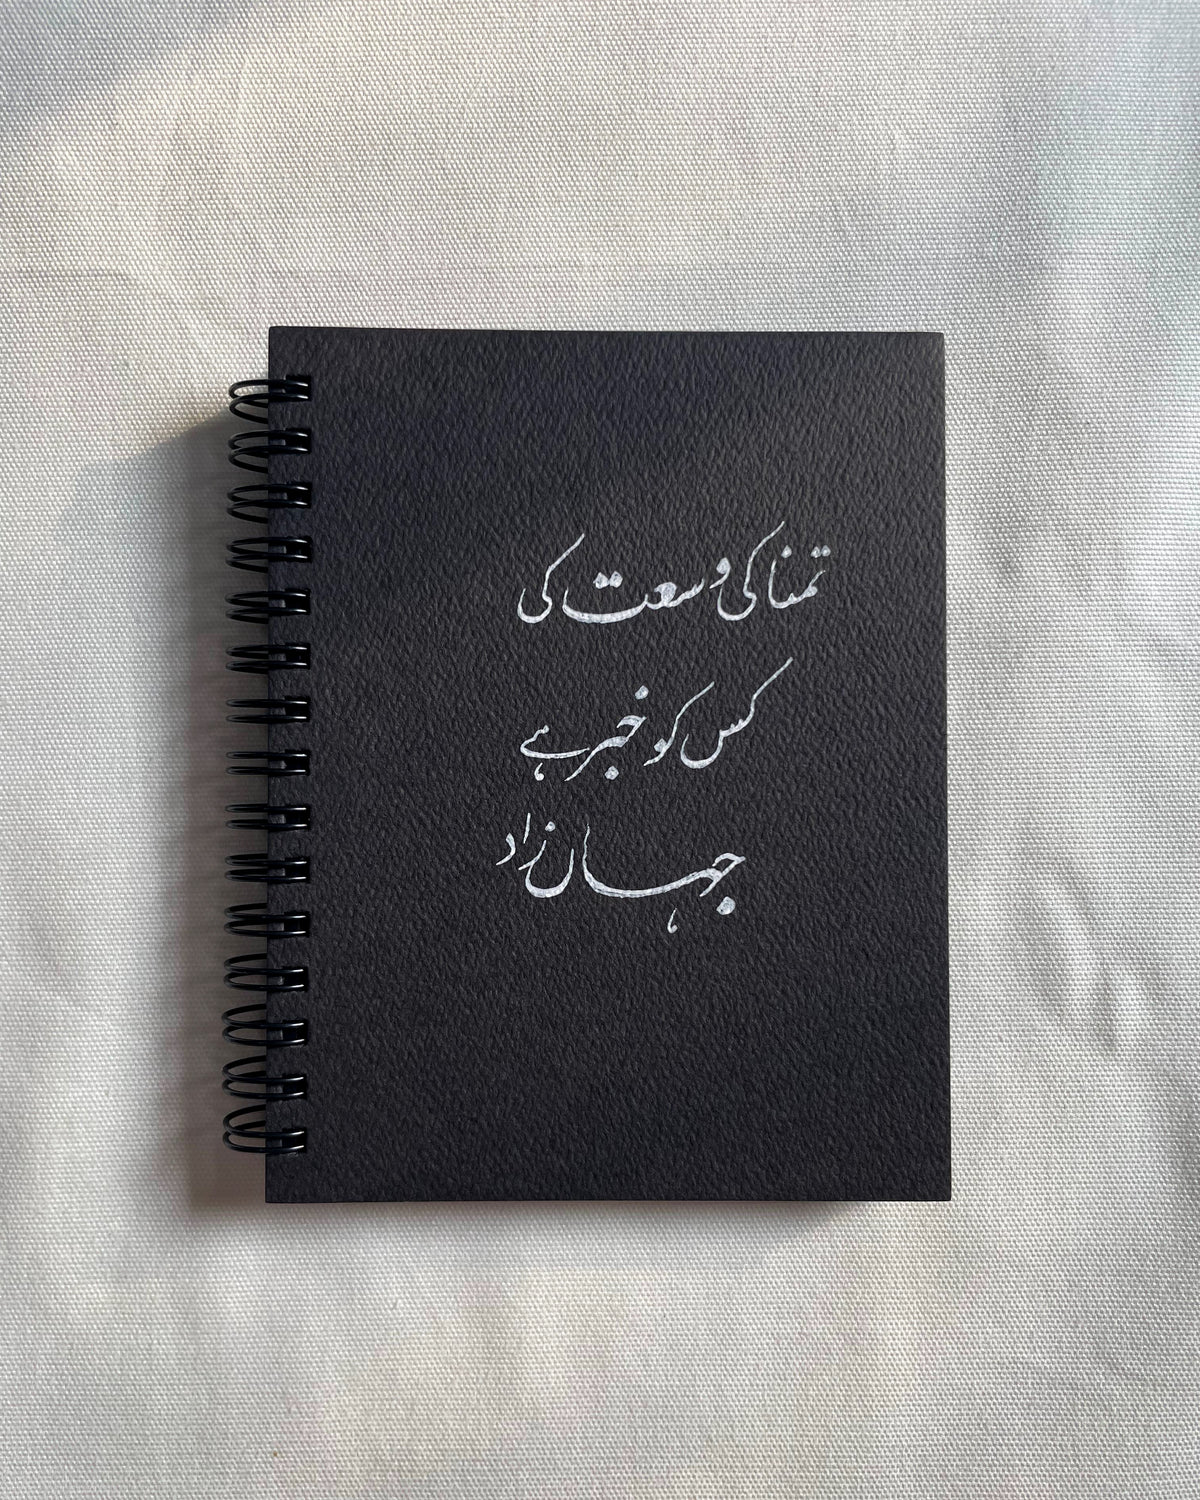 تمنا کی وسعت کی
کس کو خبر ہے
جہاں زاد